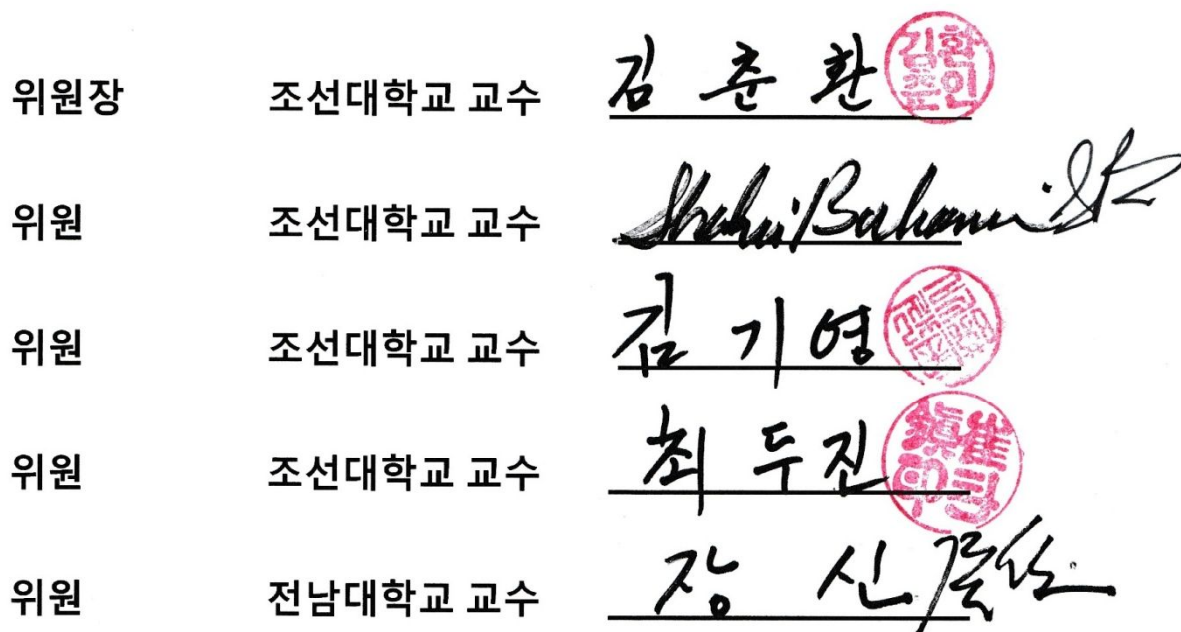 위원장 조선대학교 교수 김춘환
위원 조선대학교 교수
위원 조선대학교 교수 김기영
위원 조선대학교 교수 최두진
위원 전남대학교 교수 장신